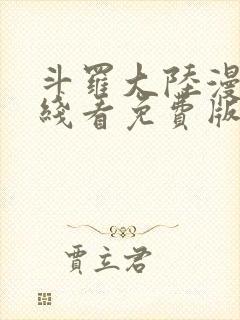 斗羅大陸漫
綫看免費版
賈立君